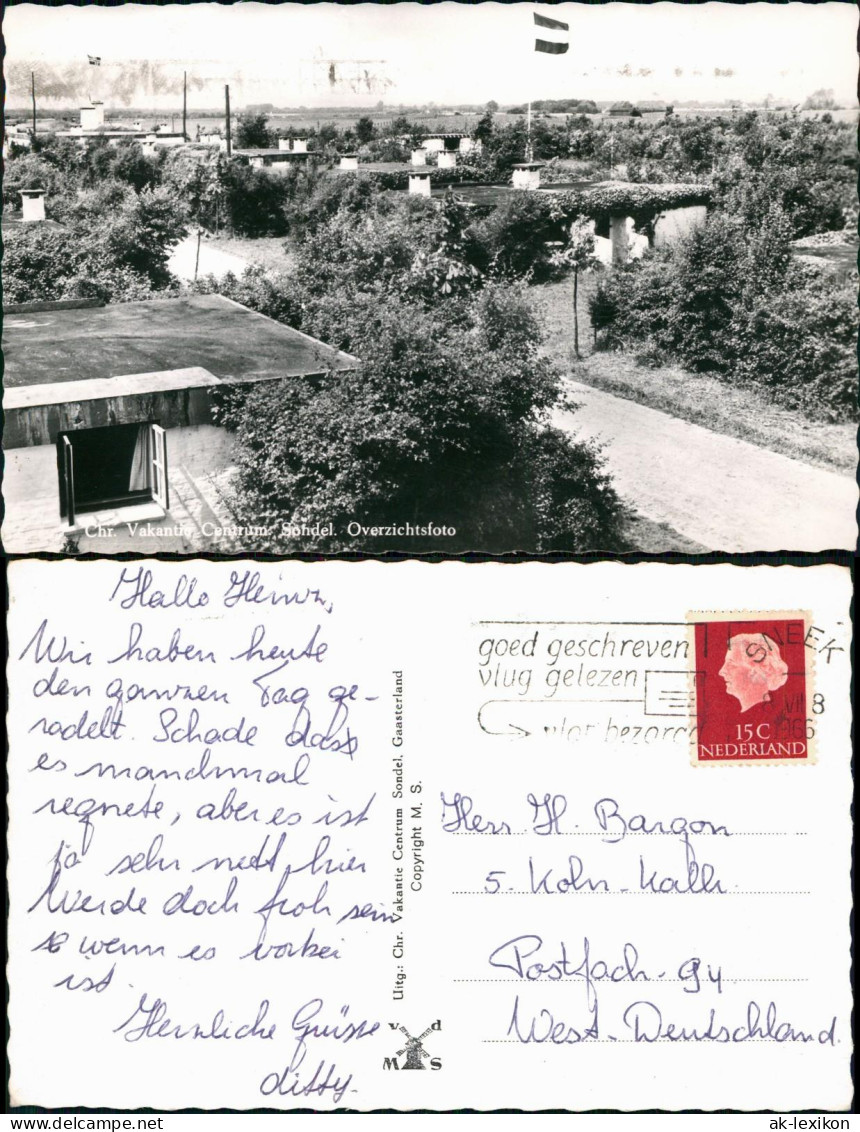 Chr. Vakantie Centrum. Sondel. Overzichtsfoto
Hallo Heinz,
Wir haben heute
den ganzen Tag ge-
radelt. Schade dass
es manchmal
regnete, aber es ist
ja sehr nett hier
Werde doch froh sein
wenn es vorbei
ist.
Herzliche Grüsse
ditty.
Uitg.: Chr. Vakantie Centrum Sondel, Gaasterland
Copyright M. S.
v d
M S
goed geschreven
vlug gelezen
vlot bezorgd
SNEEK
8 VII 8
1966
15C
NEDERLAND
Herr H. Bargon
5. Köln-Kalk
Postfach. 94
West-Deutschland.
www.ak-lexikon.de
ak-lexikon